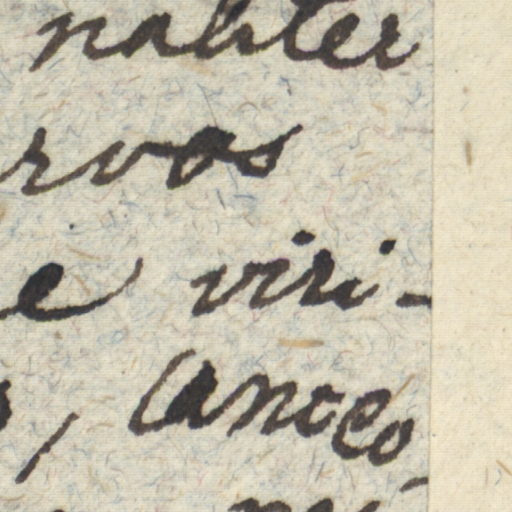 naliter
rvas
e viri-
, lanceo